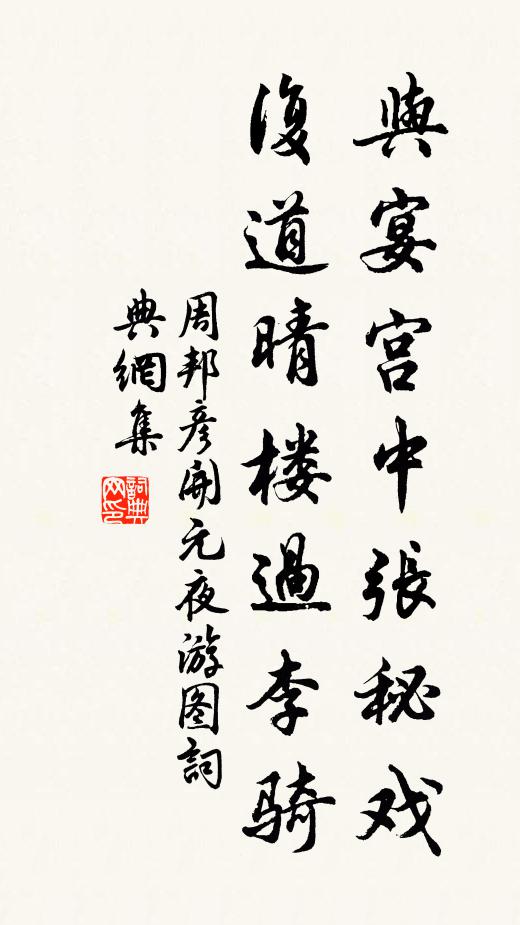 與宴宮中張秘戏
復道晴楼過李骑
周邦彦開元夜游图詞
典網集
詞典网印